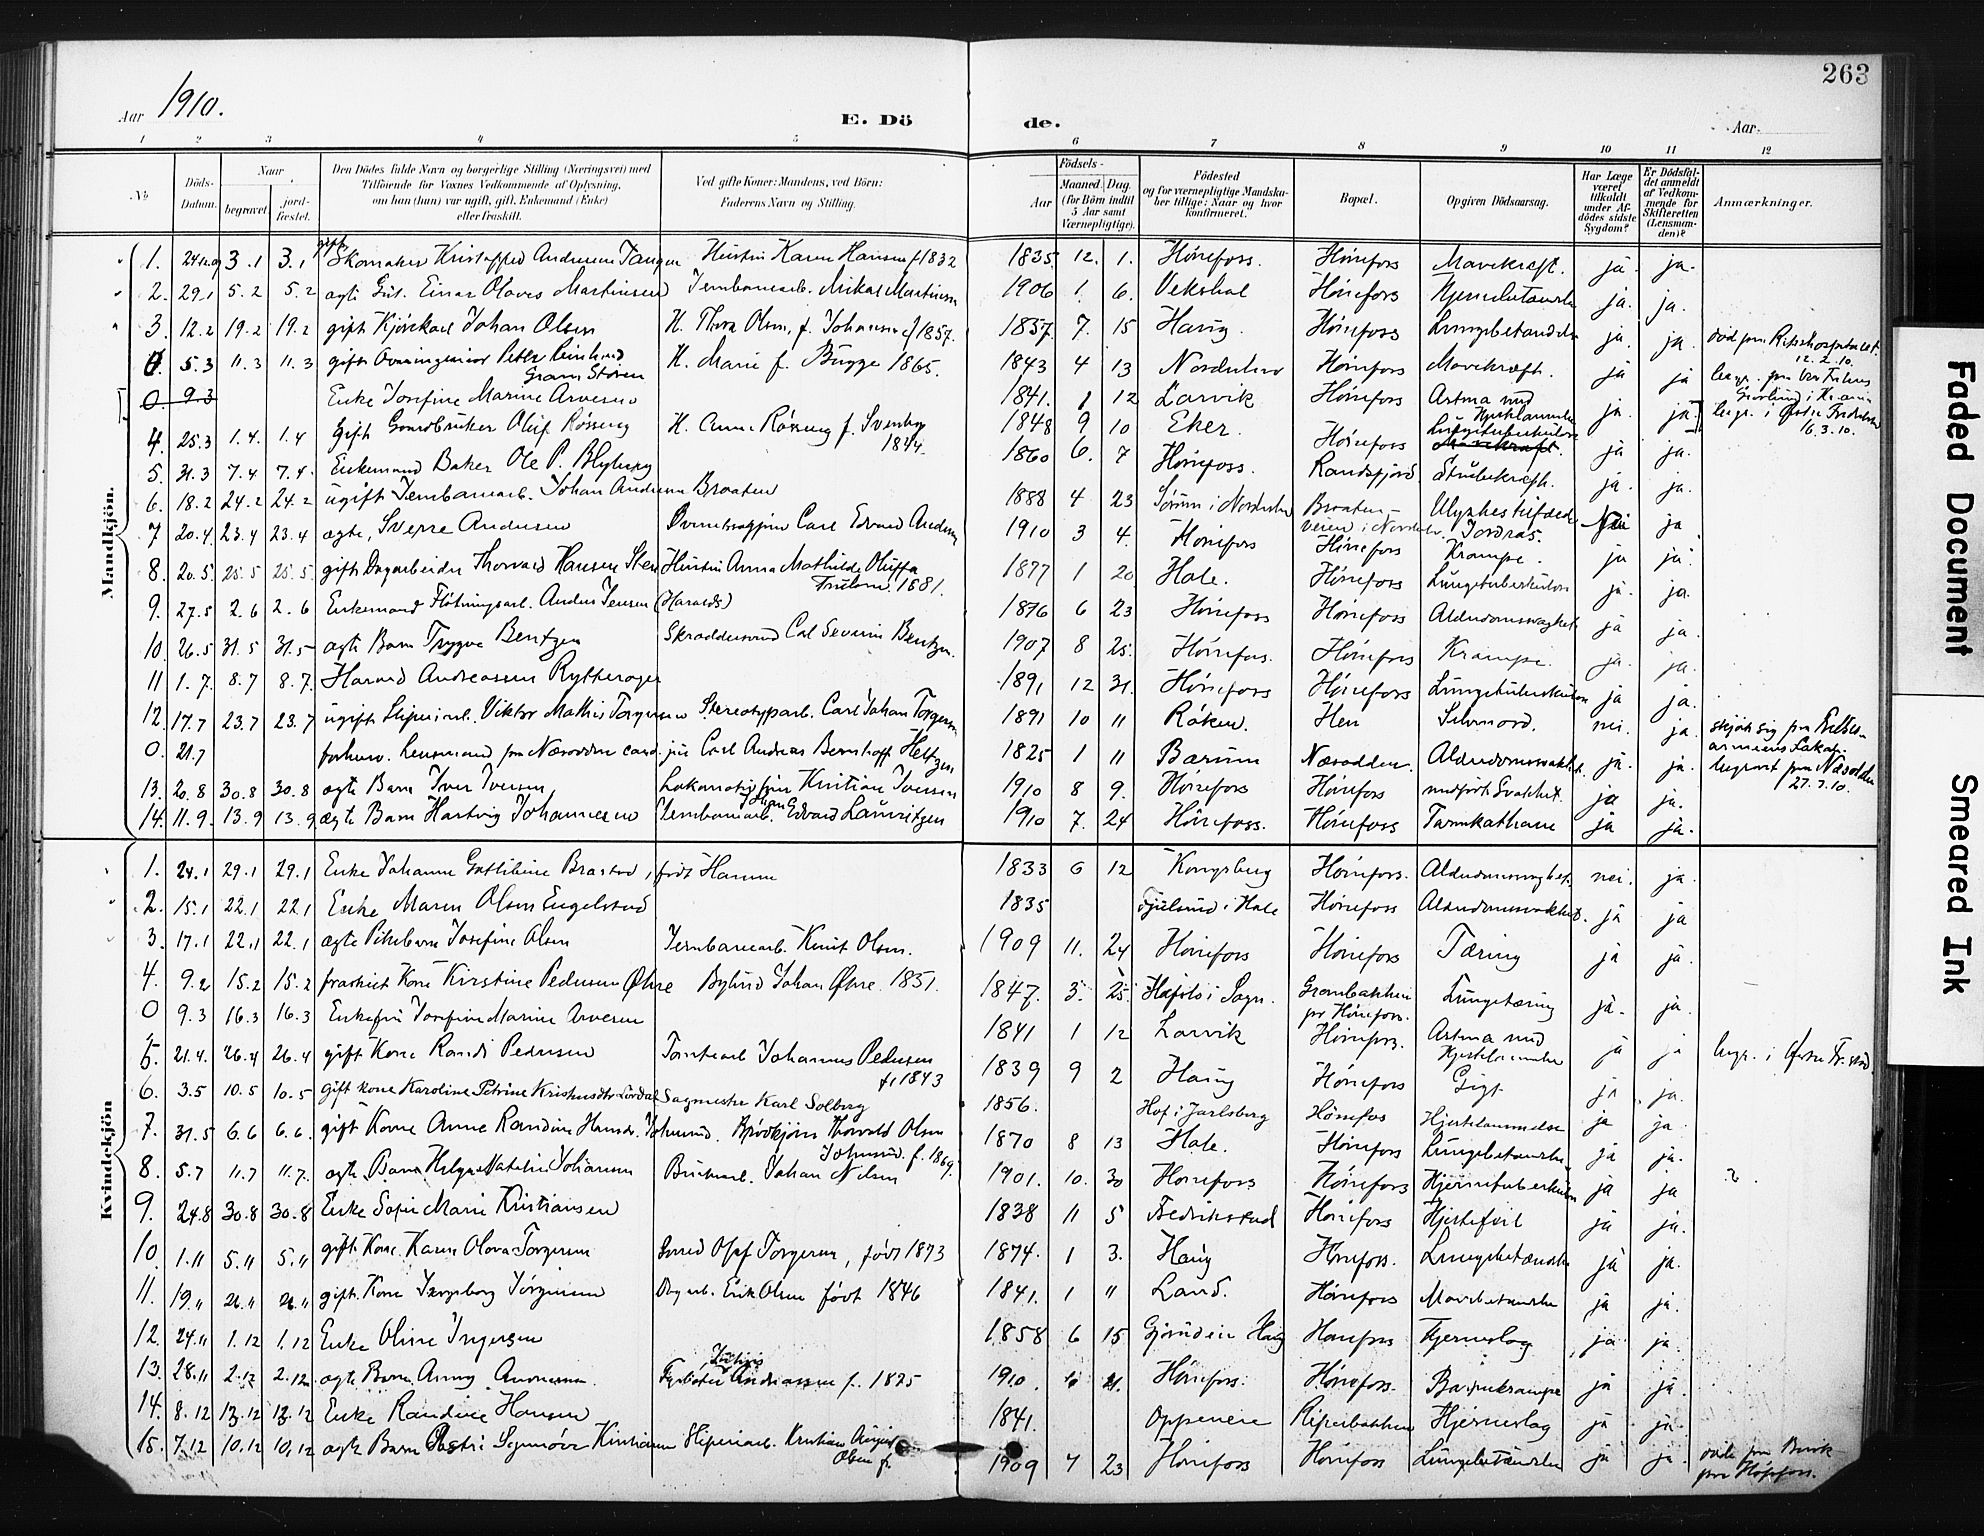 263
Aar 1910.
E. Dö de.
Aar
1 2 3 4 5 6 7 8 9 10 11 12
No
Döds-Datum.
Naar
begravet.
jord-fæstet.
Den Dödes fulde Navn og borgerlige Stilling (Næringsvei) med
Tilföiende for Voxnes Vedkommende af Oplysning,
om han (hun) var ugift, gift, Enkemand (Enke)
eller fraskilt.
Ved gifte Koner: Mandens, ved Börn:
Faderens Navn og Stilling.
Födsels-
Aar
Maaned. Dag.
(for Börn indtil
5 Aar samt
Værnepligtige).
Födested
og for værnepligtige Mandska-
ber tillige: Naar og hvor
konfirmeret.
Bopæl.
Opgiven Dödsaarsag.
Har Læge
været
tilkaldt
under Af-
dödes sidste
Sygdom?
Er Dödsfal-
det anmeldt
af Vedkom-
mende for
Skifteretten
(Lensman-
den)?
Anmærkninger.
Mandkjön.
1. 3.1 3.1 gift Skomaker Kristoffed Andersen Tangen Hustru Karen Hansen f 1832 1835 12. 1. Hönefoss. Hönefoss Mavekræft. ja ja.
2. 29.1 5.2 5.2 ægte Gut. Einar Olaves Martinsen Jernbanearb. Mikal Martinsen 1906 1. 6. Hönefoss ja. ja.
3. 12.2 19.2 19.2 gift Johan Olsen H. Thora Olsen, f. Johansen 1857. 1857. 7. 15 Haug. Hönefoss Lungebetændelse ja. ja. död paa Rikshospitalet 12.2.10.
0. 5.3 11.3 11.3 gift Peter Reinhard Gram Stören H. Marie f. Bugge 1865. 1843 4 13 Norderhov Hönefoss Mavekræft. ja ja
0. 9.3 Enke Josefine Marine Arvesen 1841. 1 12 Larvik Hönefoss Astma med Hjertelammelse ja. ja. begr. i Östre Fredrikstad 16.3.10.
4. 25.3 1.4. 1.4 gift Gaardbruker Oluf Rösseng H. Anna Rösseng f. 1844. 1848 9 10 Eker. Hönefoss Lungetuberkulose ja ja.
5. 31.3 7.4 7.4. Enkemand Baker Ole P. Blyberg 1860 6. 7 Hönefoss. Randsfjord Strubekræft. ja. ja.
6. 18.2 24.2 24.2 ugift Jernbanearb. Johan Andersen Braaten 1888 4 23 Sörum i Norderhov Braatenveien i Norderhov Ulykkestilfælde Jordras. Nei ja
7 20.4 23.4 23.4 ægte, Sverre Andersen Carl Edvard Andersen 1910 3 4. Hönefoss Hönefoss Krampe. ja ja.
8. 20.5. 25.5 25.5. gift Dagarbeider Thorvald Hansen Hustru Anna Mathilde Oluffa 1881. 1877 1 20 Hole. Hönefoss Lungetuberkulose ja. ja.
9. 27.5 2.6 2.6 Enkemand Flötningsarb. Anders Jensen (Haralds) 1826 6 23 Hönefoss Hönefoss Alderdomssvaghet ja ja.
10. 26.5 31.5 31.5 ægte Barn Trygve Bentzen Skræddersvend Carl Severin Bentzen. 1907 8 25. Hönefoss. Hönefoss Krampe. ja. ja.
11 1.7. 8.7 8.7. Harald Andreassen Rytterager 1891 12 31. Hönefoss Hönefoss Lungetuberkulose ja ja.
12. 17.7 23.7 23.7 ugift Sliperiarb. Viktor Mathis Torgersen Stereotyparb. Carl Johan Torgersen 1891 10 11 Röken. Hen Selvmord. nei. ja. skjöt sig paa Frelses-armeens Lokale.
0. 21.7 forhenv. Lensmand paa Næsodden cand. jur Carl Andreas Bernhoff Heltzen 1825 1 11 Bærum Næsodden. Alderdomssvakhet. ja. ja. begravet paa Næsodden 27.7.10.
13. 20.8 30.8 30.8 ægte Barn Iver Iversen Kristian Iversen 1910 8 9. Hönefoss Hönefoss medfödt Svakhet. ja ja.
14. 11.9. 13.9 13.9 ægte Barn Hartvig Johannesen Jernbanearb. Johan Edvard Lauritzen 1910 7. 24 Hönefoss. Hönefoss Tarmkatharr ja ja.
Kvindekjön
1. 24.1 29.1 29.1 Enke Johanne Gottlibine Brastad, födt Hansen 1833 6 12 Kongsberg Hönefoss. Alderdomssvaghet. nei. ja.
2. 15.1 22.1 22.1 Enke Maren Olsen Engelstad 1835 i Hole Hönefoss Alderdomssvakhet. ja ja
3. 17.1 22.1 22.1 ægte Pikebarn Josefine Olsen Jernbanearb. Knut Olsen. 1909 11. 24 Hönefoss Hönefoss Tæring ja ja.
4. 9.2 15.2 15.2 fraskilt Kone Kirstine Pedersen Öhre Johan Öhre. 1851. 1847. 3. 25. Hafslo i Sogn. Grønbakken pr Hönefoss. Lungetæring ja. ja.
0 9.3 16.3 16.3 Enkefru Josefine Marine Arvesen 1841 1 12 Larvik Hönefoss. Astma med Hjertelammelse ja ja begr. i Östre Fr.stad.
5. 21.4. 26.4 26.4 gift Kone Randi Pedersen Tomtearb Johannes Pedersen f. 1843 1839 9 2 Haug Hönefoss Gigt. ja ja.
6. 3.5 10.5 10.5 gift kone Karoline Petrine Sagmester Karl Solberg 1856. Hof i Jarlsberg Hönefoss Hjertelammelse ja ja.
7. 31.5 6.6 6.6. gift Kone Anne Randine Thorvald Olsen f. 1869. 1870 8 13 Hole. Hönefoss Lungebetændelse ja ja.
8. 5.7 11.7 11.7. ægte Barn Helga Natalie Johansen Johan Nilsen 1901. 10. 30 Hönefoss Hönefoss Hjernetuberkulose ja ja
9. 24.8 30.8 30.8 Enke Sofie Marie Kristiansen 1838 11 5 Fredrikstad Hönefoss Hjertefeil ja ja.
10 1.11 5.11 5.11 gift Kone Karen Olova Torgersen Olaf Torgersen, födt 1873 1874. 1 3. Haug Hönefoss. Lungebetændelse ja ja.
11. 19.11 26.11 26.11 gift Kone Ingeborg Jörgensen Dagarb. Erik Olsen födt 1846 1841. 1 11 Land. Hönefoss Mavebetændelse ja ja.
12. 24.11 1.12 1.12 Enke Oline Ingersen 1858 6 15 Haug Hönefoss Hjerneslag ja ja.
13. 28.11 2.12 2.12 ægte Barn Anny Fyrböter Andreassen f. 1875 1910 21. Hönefoss. Hönefoss. Barnekrampe ja ja.
14. 8.12 13.12 13.12 Enke Randine Hansen 1841. Oppenere Riperbakken Hjerneslag ja ja.
15. 7.12 10.12 10.12 ægte Barn Kristiansen Sliperiarb. Kristian Olsen f. 1909 7 23 Hönefoss Hönefoss Lungebetændelse ja ja.
Faded Document
Smeared Ink